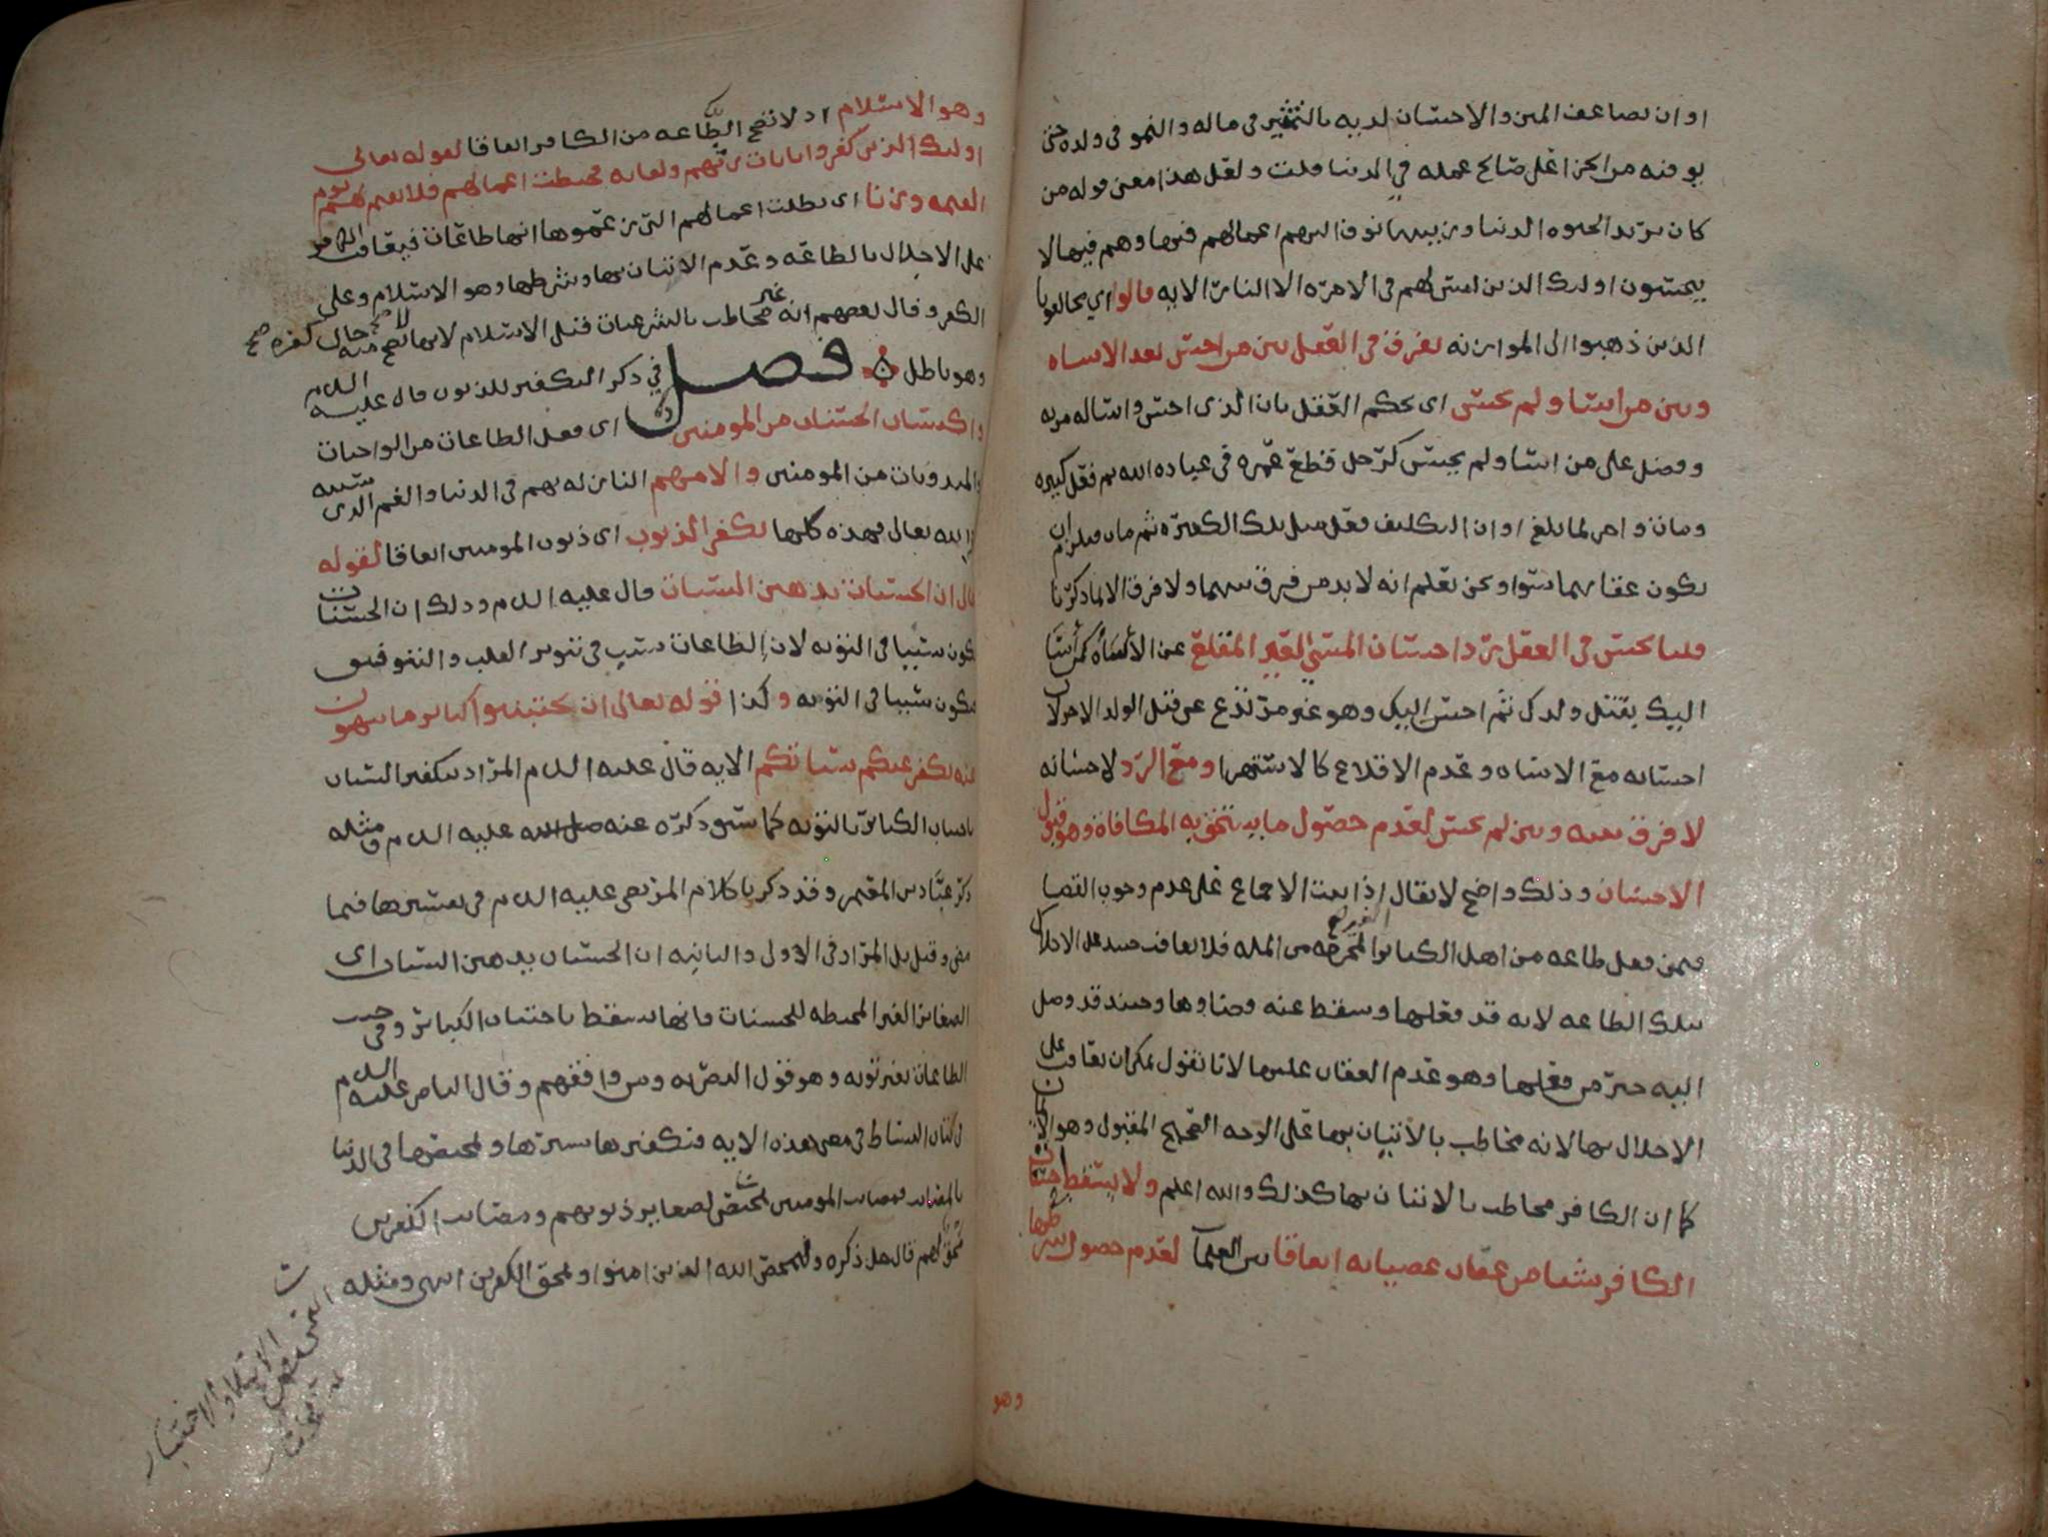 او ان يضاعف المين والاحسان لديه بالتثمير في ماله والنمو في ولده حتى
يوفيه من اجزا على صالح عمله في الدنيا قلت ولعل هذا معنى قوله من
كان يريد الحيوه الدنيا وزينتها نوف اليهم اعمالهم فيها وهم فيها لا
يبخسون اولئك الذين ليس لهم في الاخره الا النار الايه قالوا اي مخالفونا
الذين ذهبوا الى الموازنه يفرق في العقل بين من احسن بعد الاساه
وبين من اسا ولم يحسن اي يحكم العقل بان الذي احسن واساله مزيه
وفضل على من اسا ولم يحسن كرجل قطع عمره في عباده الله ثم فعل كبيره
ومات واخر لما بلغ اوان التكليف فعل مثل تلك الكبيره ثم مات فيلزم ان
يكون عقابهما سوا ونحن نعلم انه لا بد من فرق بينهما ولا فرق الا لما ذكرنا
قلنا يحسن في العقل رد احسان المسي الغير المقلع عن الاساه كمن اسا
اليك بقتل ولدك ثم احسن اليك وهو غير مرتدع عن قتل الولد الاخر لان
احسانه مع الاساه وعدم الاقلاع كالاستهزا ومع الرد لاحسانه
لا فرق بينه وبين لم يحسن لعدم حصول ما يستحق به المكافاه وهو قبول
الاحسان وذلك واضح لا يقال اذا ثبت الاجماع على عدم وجوب القضا
فيمن فعل طاعه من اهل الكبائر المخرجه من المله فلا يعاقب حينئذ على الاخلال
بتلك الطاعه لانه قد فعلها وسقط عنه قضاوها وحينئذ قد وصل
اليه خير من فعلها وهو عدم العقاب عليها لانا نقول يمكن ان يعاقب على
الاخلال بها لانه مخاطب بالاتيان بها على الوجه الصحيح المقبول وهو الايمان
كما ان الكافر مخاطب بالاتيان بها كذلك والله اعلم ولا يسقط حسنات
الكافر شيا من عقاب عصيانه اتفاقا بين العلما لعدم حصول شرطها
وهو
وهو الاسلام اذ لا تصح الطاعه من الكافر اتفاقا لقوله تعالى
اولئك الذين كفروا بايات ربهم ولقايه فحبطت اعمالهم فلا نقيم لهم يوم
القيمه وزنا اي بطلت اعمالهم التي زعموها انها طاعات فيعاقب الكافر
على الاخلال بالطاعه وعدم الاتيان بها وبشرطها وهو الاسلام وعلى
الكفر وقال بعضهم انه غير مخاطب بالشرعيات قبل الاسلام لانها لا تصح منه حال كفره صح
وهو باطل فصل في ذكر التكفير للذنوب قال عليه السلام
واكتساب الحسنات من المومنين اي فعل الطاعات من الواجبات
والمندوبات من المومنين والامهم النازله بهم في الدنيا والغم الذي سببه
الله تعالى فهذه كلها تكفر الذنوب اي ذنوب المومنين اتفاقا لقوله
تعالى ان الحسنات يذهبن السيات قال عليه السلام وذلك ان الحسنات
تكون سببا في التوبه لان الطاعات سبب في تنوير القلب والتوفيق
فتكون سببا في التوبه وكذا قوله تعالى ان تجتنبوا كبائر ما تنهون
عنه نكفر عنكم سياتكم الايه قال عليه السلام المراد بتكفير السيات
باجتناب الكبائر بالتوبه كما سبق ذكره عنه عليه السلام ومثله
ذكر عباد بن المعتمر وقد ذكرنا كلام المرتضى عليه السلام في تفسيرها فيما
مضى وقيل بل المراد في الاولى والثانيه ان الحسنات يذهبن السيات اي
الصغائر الغير المحبطه للحسنات فانها تسقط باجتناب الكبائر وفي جنب
الطاعات بغير توبه وهو قول البصريه ومن وافقهم وقال الناصر عليه السلام
في كتاب البساط في معنى هذه الايه فتكفيرها سترها وتمحيصها في الدنيا
بالمصائب فمصائب المومنين تمحيص لصغاير ذنوبهم ومصائب الكافرين
محق لهم قال جل ذكره وليمحص الله الذين امنوا ويمحق الكافرين انتهى ومثله
الابتلا والاختبار